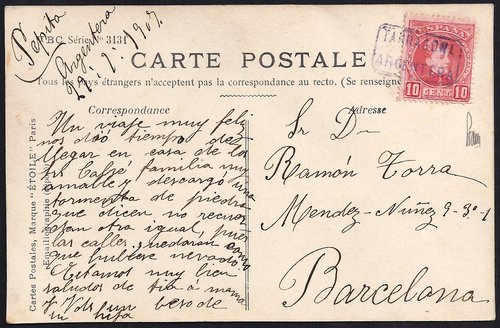 Pepita
Argentera
29. 7. 1907
BC. Série N° 3131
CARTE POSTALE
ESPAÑA
10 CENT. 10
TARRAGONA
ARGENTERA
Tous les pays étrangers n'acceptent pas la correspondance au recto. (Se renseigner
Correspondance
Adresse
Un viaje muy feliz
nos dió tiempo de
llegar en casa de los
Sr Calles, familia muy
amable y descargó una
tormenta de piedra
que dicen no recuer-
dan otra igual, pues
las calles quedaron como
que hubiese nevado.
Estamos muy bien
saludos de tia á mama
y Vds un beso de
su hija
Sr Dn
Ramón Torra
Mendez-Nuñez 9-3°-1ª
Barcelona
Cartes Postales, Marque "ÉTOILE" Paris